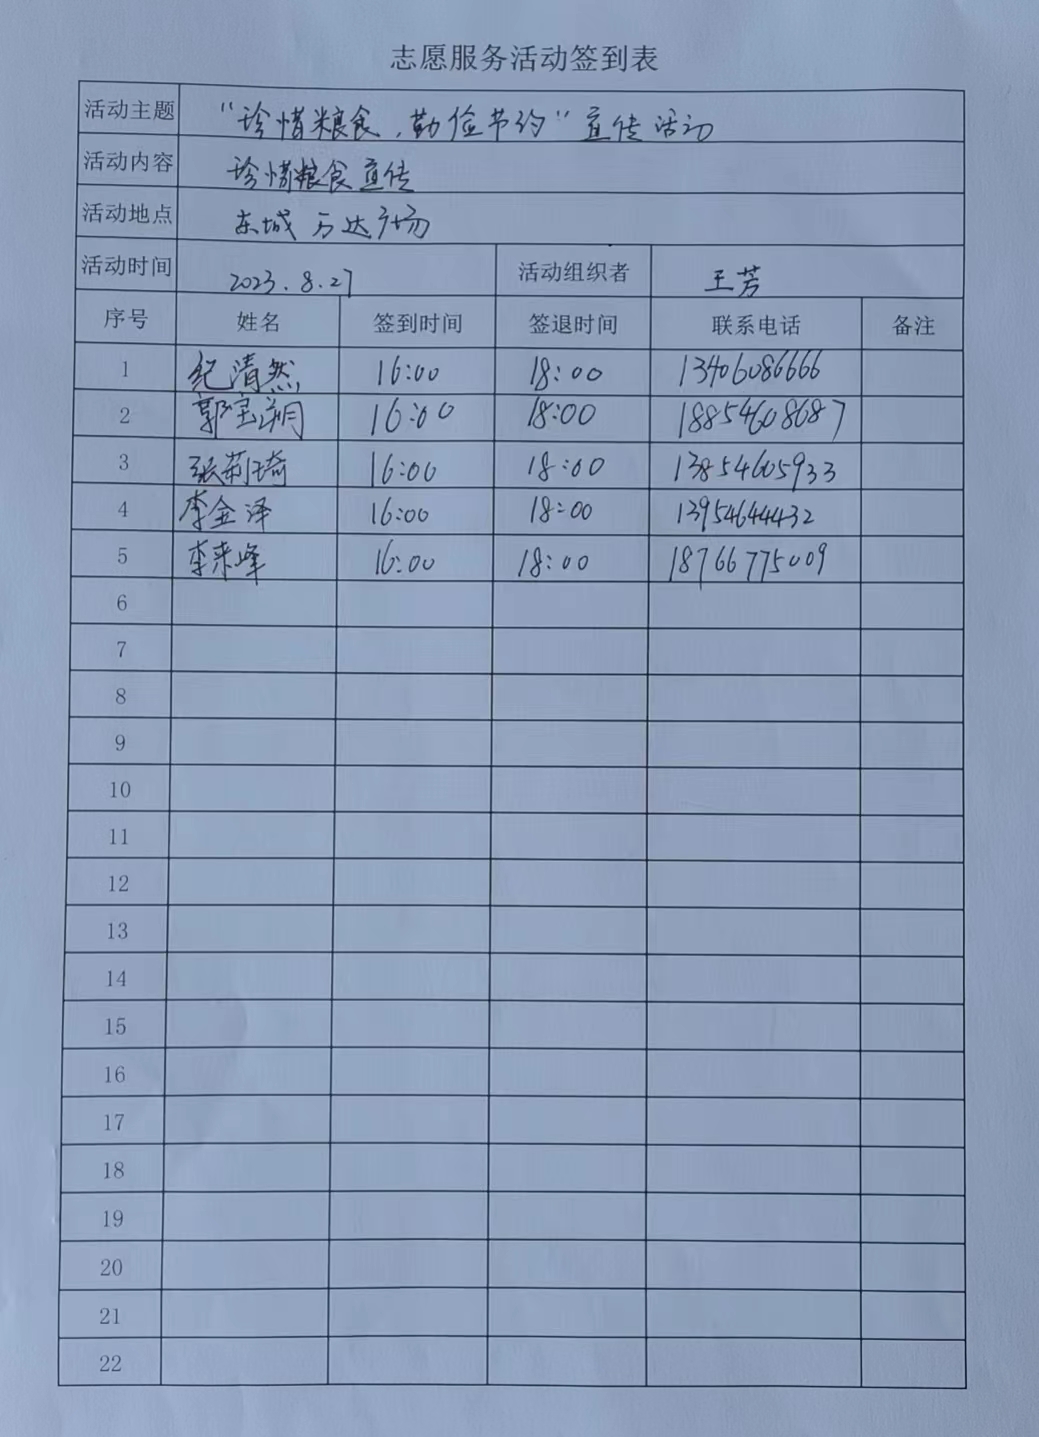 志愿服务活动签到表
活动主题 “珍惜粮食，勤俭节约”宣传活动
活动内容 珍惜粮食宣传
活动地点 东城万达广场
活动时间 2023.8.27 活动组织者 王芳
序号 姓名 签到时间 签退时间 联系电话 备注
1 纪清然 16:00 18:00 13406086666
2 郭宝翔 16:00 18:00 18854608687
3 张莉琦 16:00 18:00 13854605933
4 李金泽 16:00 18:00 13954644432
5 李来峰 16:00 18:00 18766775009
6
7
8
9
10
11
12
13
14
15
16
17
18
19
20
21
22